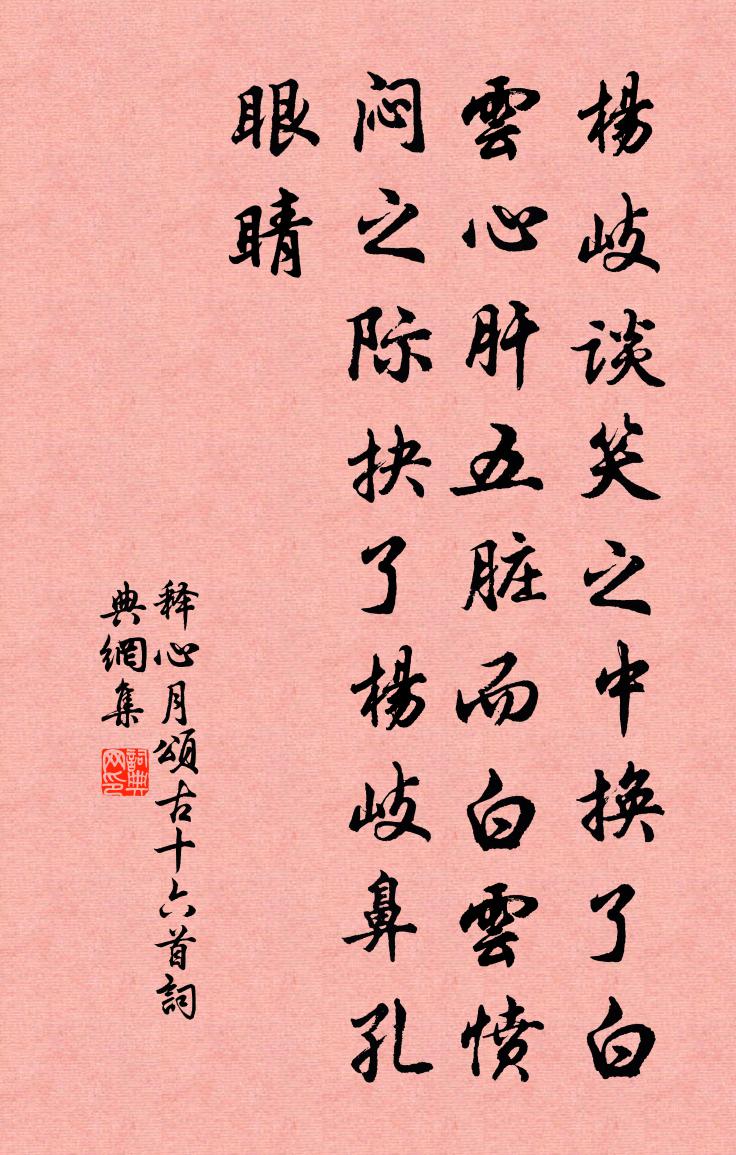 楊岐谈笑之中换了白
雲心肝五脏而白雲愤
闷之际抉了楊岐鼻孔
眼睛
释心月頌古十六首詞
典網集
詞典
网印